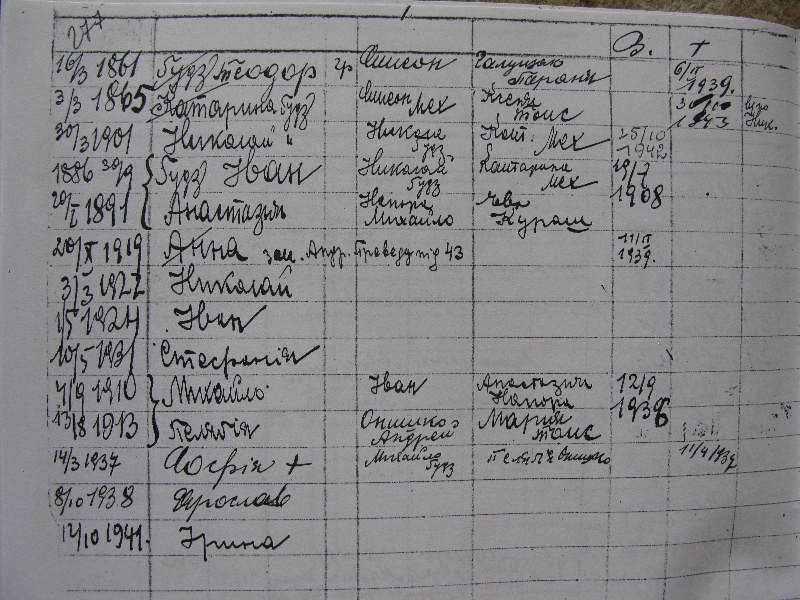 277
В. +
16/3 1861 Гудз Теодор гр Симеон Параня 6/II 1939.
3/3 1865 Катарина Гудз Симеон Мех Ксеня Тоис 1943
30/3 1901 Николай " Никола Гудз Кат. Мех 25/10 1942
1886 30/9 Гудз Іван Николай Гудз Катарина Мех 19/7 1908
1891 Анастазия Напора Михайло Ева Кураш
20/X 1919 Анна зам. Андр. Проведу під 43 11/II 1939.
3/3 1922 Николай
1/5 1924 Іван
10/5 1931 Стефанія
4/9 1910 Михайло Іван Анастазия Напора 12/9 1936
13/8 1913 Пелягія Онишко Андрей Мария Тоис
14/3 1937 Софія + Михайло Гудз Пелягія Онишко 11/4 1937
8/10 1938 Ярослав
12/10 1941. Ірина